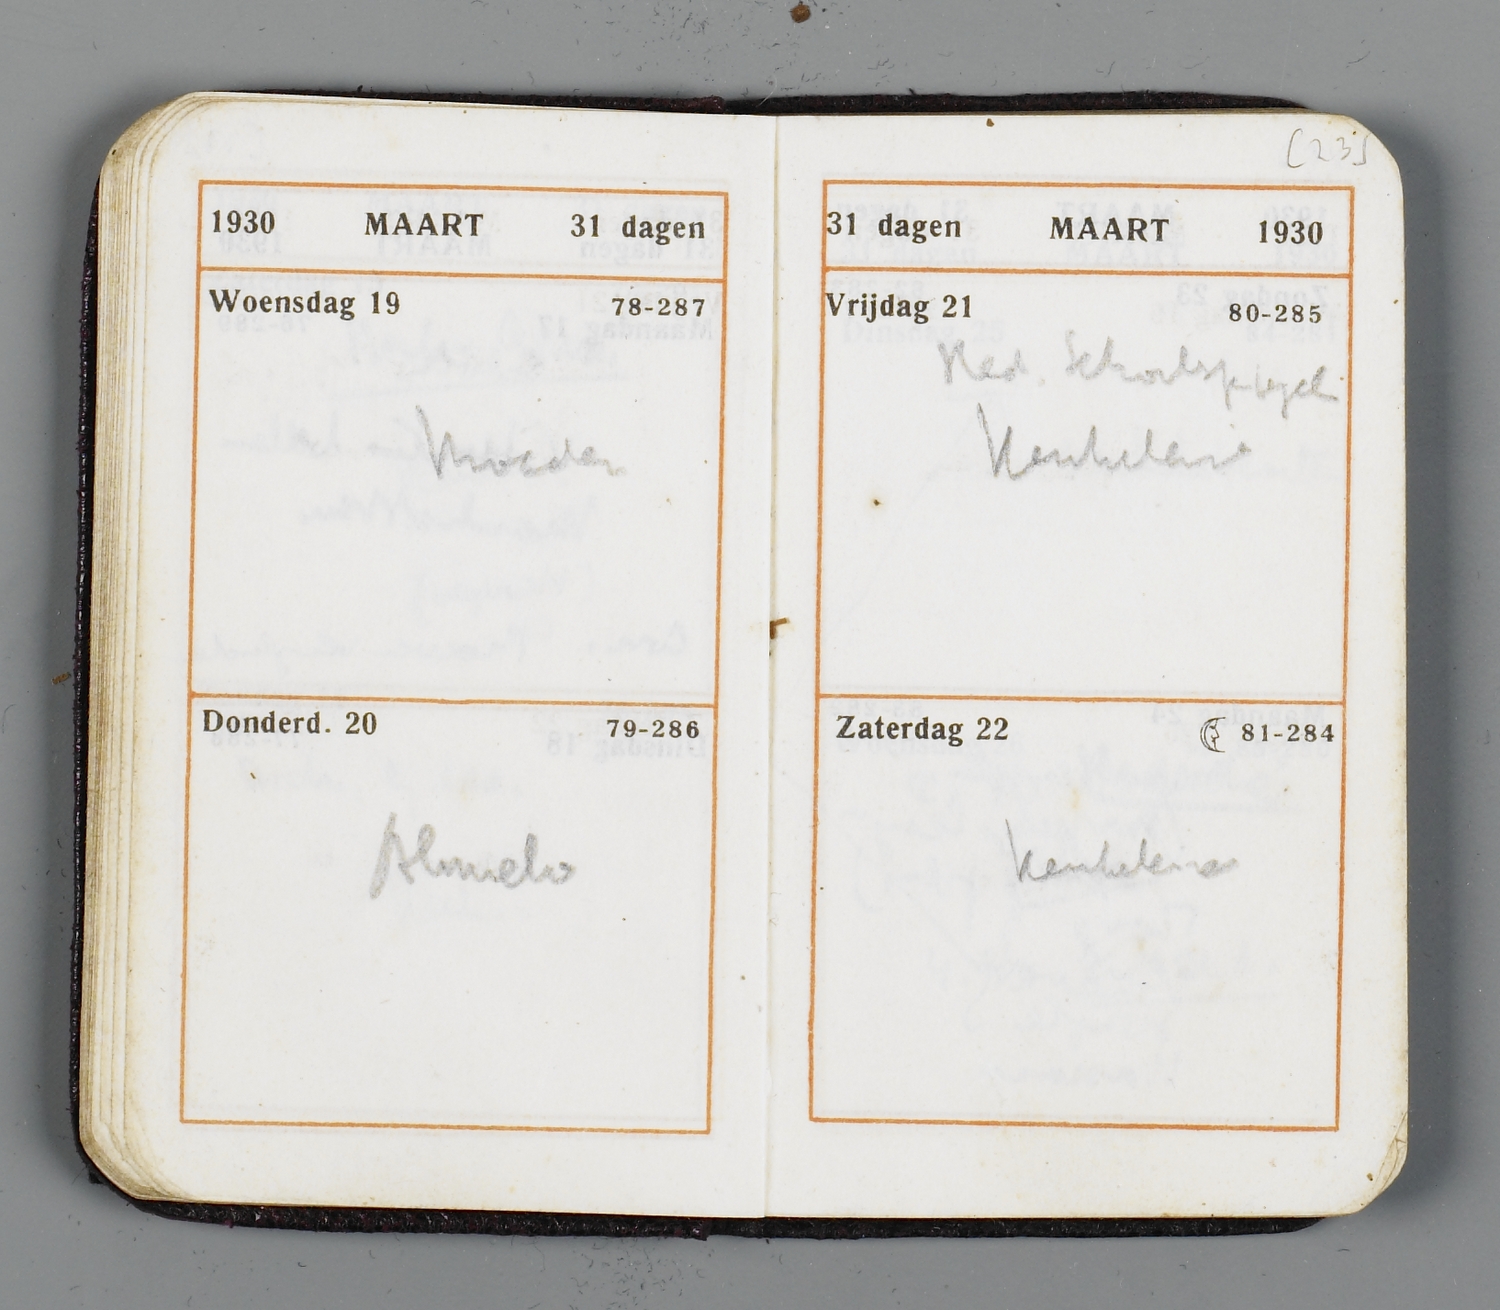 1930 MAART 31 dagen
Woensdag 19 78-287
Moeder
Donderd. 20 79-286
Almelo
[23]
31 dagen MAART 1930
Vrijdag 21 80-285
Red. Schoolspiegel
Zaterdag 22 81-284